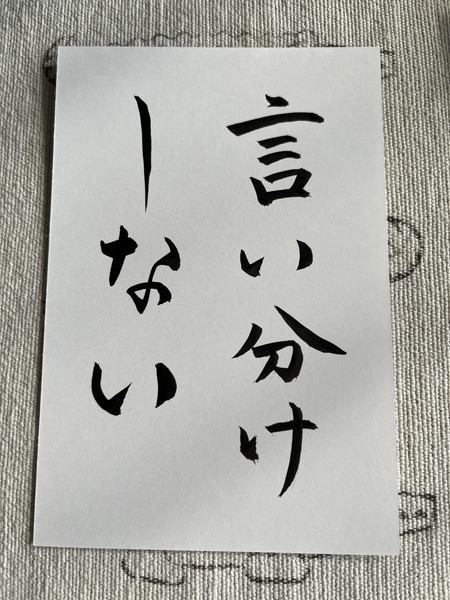 言い分け
しない